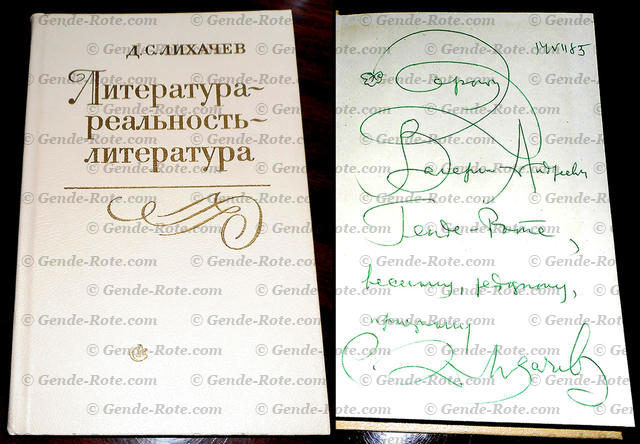 Д. С. ЛИХАЧЕВ
Литература–
реальность–
литература
14 VII 85
Дорогому
Валерию Андреевичу
Генде-Роте,
веселому,
Д. Лихачев
© Gende-Rote.com